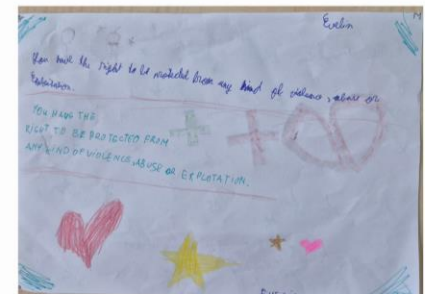 Evelin
You have the right to be protected from any kind of violence, abuse or
YOU HAVE THE
RIGT TO BE PROTECTED FROM
ANY KIND OF VIOLENCE, ABUSE OR EXPLOTATION.